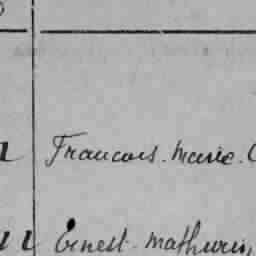 Francois. Marie.
Ernest. Mathurin,